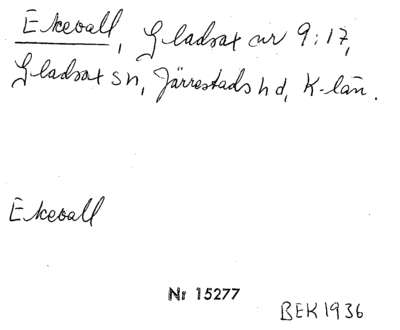 Ekevall, Gladsax nr 9:17,
Gladsax sn, Järrestads hd, K-län.
Ekevall
Nr 15277
BEK 1936